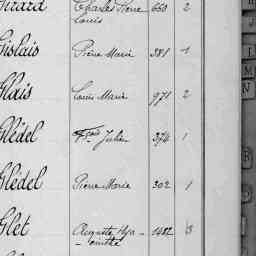 Girard Charles Pierre 660 2
Louis
Gislais Pierre Marie 381 1
Glais Louis Marie 971 2
Glédel Fçois Julien 374 1
Glédel Pierre Marie 302 1
Glet Auguste Hya- 1482 3
-cinthe